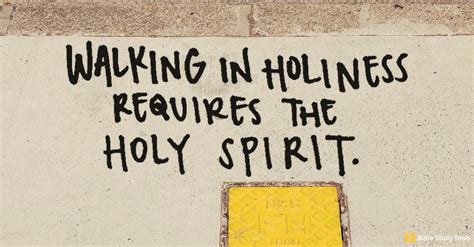 WALKING IN HOLINESS
REQUIRES THE
HOLY SPIRIT.
Bible Study Tools